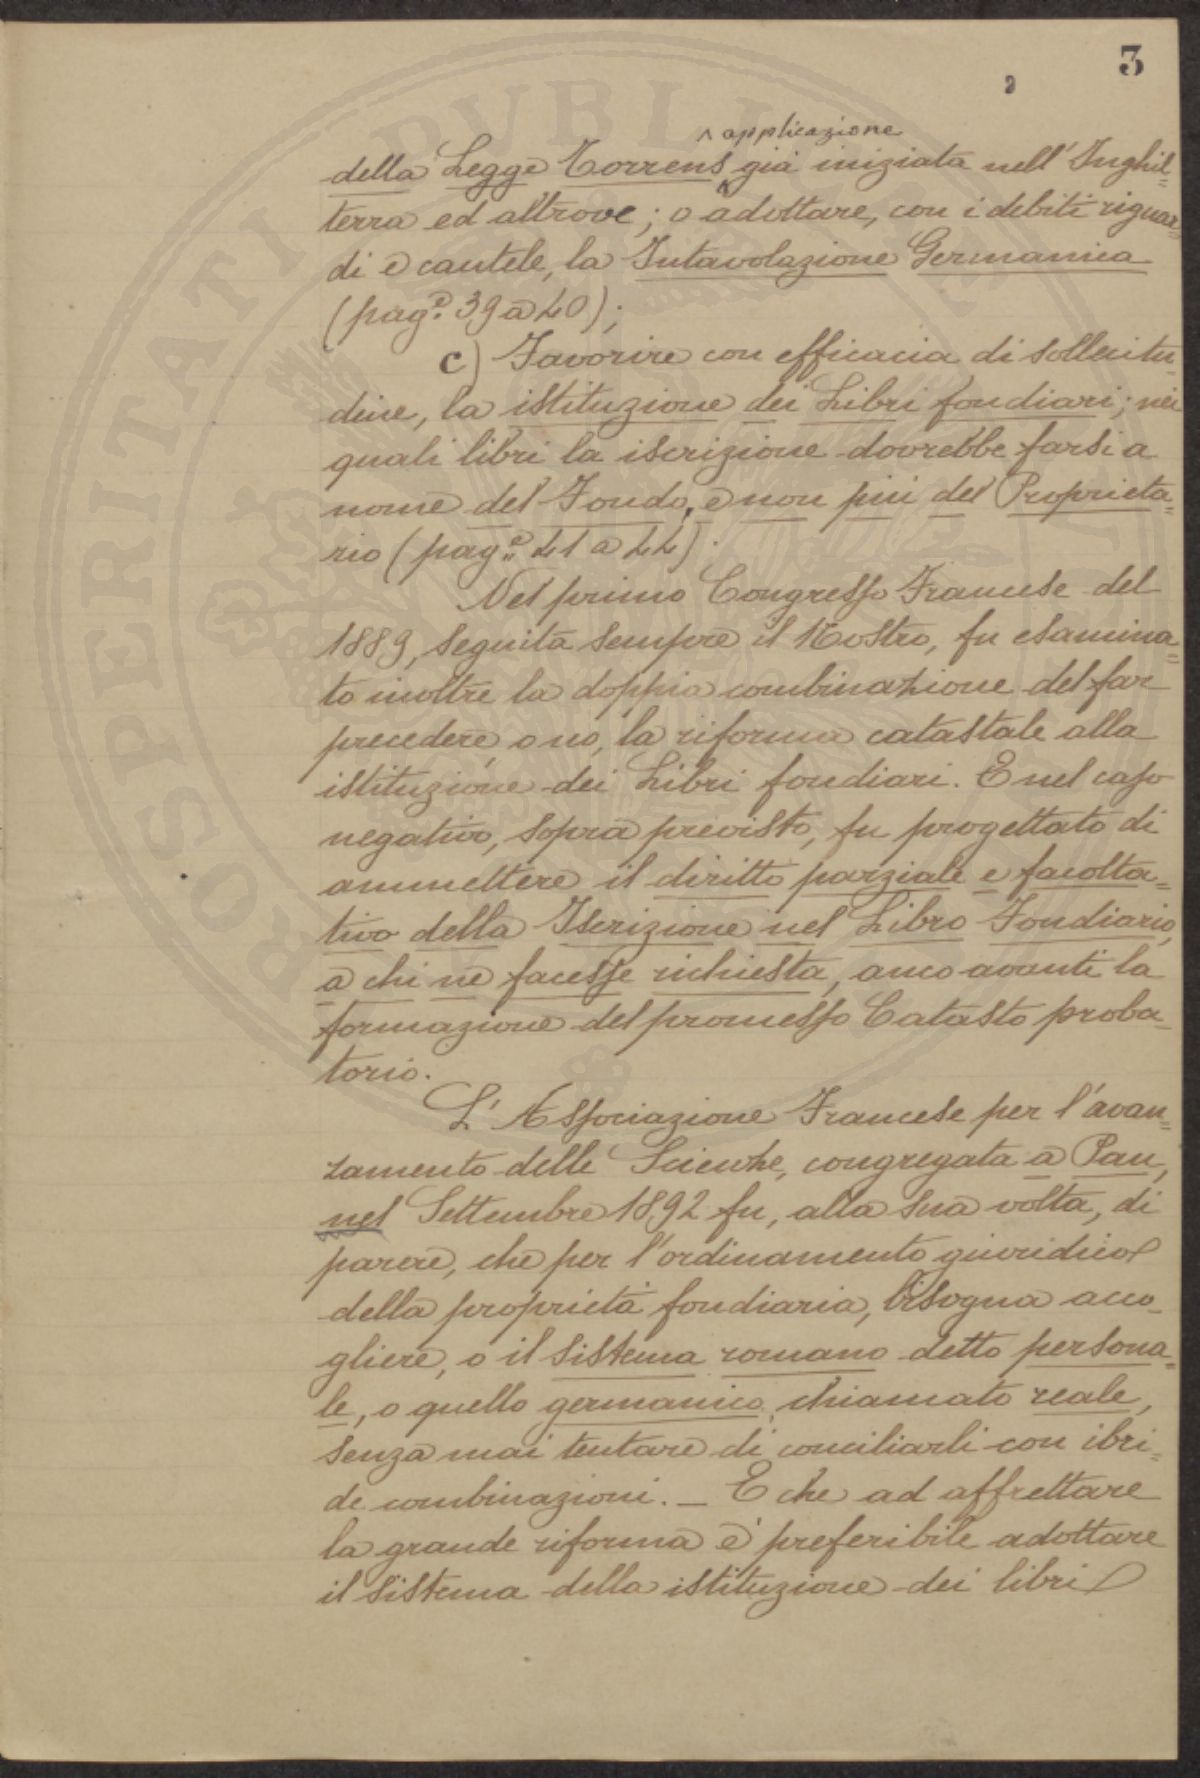 3
2
^ applicazione
della Legge Torrens ^ già iniziata nell'Inghil=
terra ed altrove; o adottare, con i debiti riguar=
di e cautele, la Intavolazione Germanica
(pag.e 39 a 40);
c) Favorire con efficacia di sollecitu=
dine, la istituzione dei Libri fondiari; nei
quali libri la iscrizione dovrebbe farsi a
nome del Fondo, e non più del Proprieta=
rio (pag.e 41 a 44).
Nel primo Congresso Francese del
1889, seguita sempre il Nostro, fu esamina=
to inoltre la doppia combinazione del far
precedere, o no, la riforma catastale alla
istituzione dei Libri fondiari. E nel caso
negativo, sopra previsto, fu progettato di
ammettere il diritto parziale e facolta=
tivo della Iscrizione nel Libro Fondiario,
a chi ne facesse richiesta, anco avanti la
formazione del promesso Catasto proba=
torio.
L'Associazione Francese per l'avan=
zamento delle Scienze, congregata a Pau,
nel Settembre 1892 fu, alla sua volta, di
parere, che per l'ordinamento giuridico
della proprietà fondiaria, bisogna acco=
gliere, o il sistema romano detto persona=
le, o quello germanico, chiamato reale,
senza mai tentare di conciliarli con ibri=
de combinazioni. — E che ad affrettare
la grande riforma è preferibile adottare
il sistema della istituzione dei libri
PROSPERITATI PUBLICAE